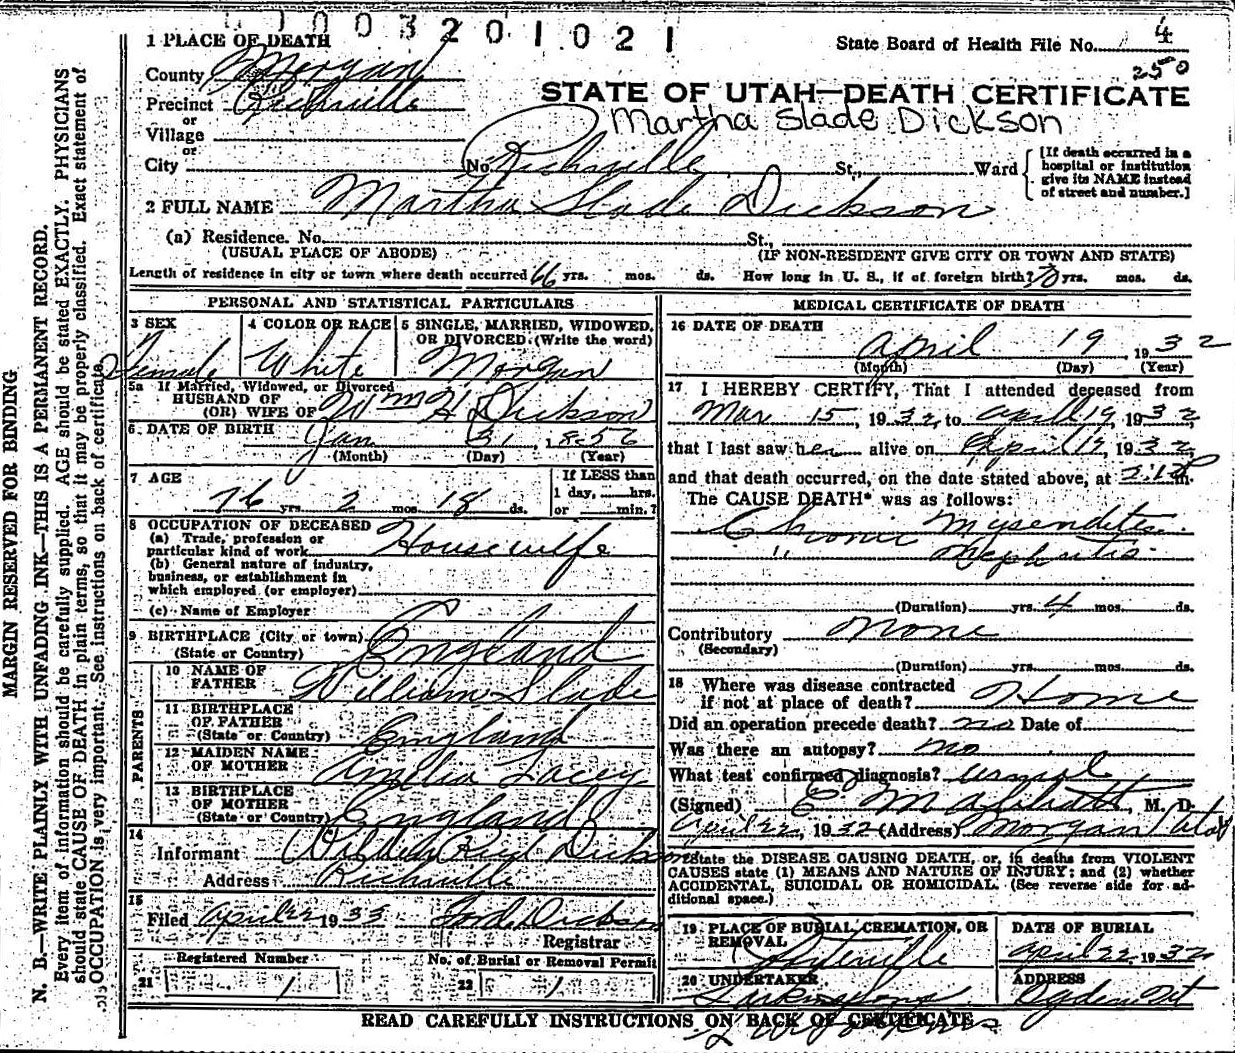 003201021
1 PLACE OF DEATH
State Board of Health File No. 4
County Morgan
250
Precinct Richville
STATE OF UTAH—DEATH CERTIFICATE
or
Village
Martha Slade Dickson
or
City No. Richville St., Ward
[If death occurred in a hospital or institution give its NAME instead of street and number.]
2 FULL NAME Martha Slade Dickson
(a) Residence. No. St.,
(USUAL PLACE OF ABODE) (IF NON-RESIDENT GIVE CITY OR TOWN AND STATE)
Length of residence in city or town where death occurred 66 yrs. mos. ds. How long in U. S., if of foreign birth? 70 yrs. mos. ds.
PERSONAL AND STATISTICAL PARTICULARS
3 SEX
Female
4 COLOR OR RACE
White
5 SINGLE, MARRIED, WIDOWED,
OR DIVORCED. (Write the word)
Morgan
5a If Married, Widowed, or Divorced
HUSBAND OF
(OR) WIFE OF Wm H Dickson
6 DATE OF BIRTH Jan 31, 1856
(Month) (Day) (Year)
7 AGE
76 yrs. 2 mos. 18 ds.
If LESS than
1 day, hrs.
or min.?
8 OCCUPATION OF DECEASED
(a) Trade, profession or
particular kind of work Housewife
(b) General nature of industry,
business, or establishment in
which employed (or employer)
(c) Name of Employer
9 BIRTHPLACE (City or town)
(State or Country) England
PARENTS
10 NAME OF
FATHER William Slade
11 BIRTHPLACE
OF FATHER
(State or Country) England
12 MAIDEN NAME
OF MOTHER Amelia Lacey
13 BIRTHPLACE
OF MOTHER
(State or Country) England
14
Informant Reed Dickson
Address Richville
15
Filed April 22 1933 Dickson
Registrar
Registered Number No. of Burial or Removal Permit
21 1 22 1
MEDICAL CERTIFICATE OF DEATH
16 DATE OF DEATH
April 19, 1932
(Month) (Day) (Year)
17 I HEREBY CERTIFY, That I attended deceased from
Mar 15, 1932, to April 19, 1932
that I last saw her alive on April 19, 1932
and that death occurred, on the date stated above, at m.
The CAUSE DEATH* was as follows:
Chronic
" Nephritis
(Duration) yrs. 4 mos. ds.
Contributory None
(Secondary)
(Duration) yrs. mos. ds.
18 Where was disease contracted
if not at place of death? Home
Did an operation precede death? no Date of
Was there an autopsy? no
What test confirmed diagnosis? usual
(Signed) M. D.
April 22, 1932 (Address) Morgan Utah
*State the DISEASE CAUSING DEATH, or, in deaths from VIOLENT
CAUSES state (1) MEANS AND NATURE OF INJURY; and (2) whether
ACCIDENTAL, SUICIDAL OR HOMICIDAL. (See reverse side for ad-
ditional space.)
19 PLACE OF BURIAL, CREMATION, OR
REMOVAL
DATE OF BURIAL
April 22, 1932
20 UNDERTAKER
Larkin & Sons
ADDRESS
Ogden Ut
READ CAREFULLY INSTRUCTIONS ON BACK OF CERTIFICATE
MARGIN RESERVED FOR BINDING
N. B.—WRITE PLAINLY WITH UNFADING INK—THIS IS A PERMANENT RECORD.
Every item of information should be carefully supplied. AGE should be stated EXACTLY. PHYSICIANS
should state CAUSE OF DEATH in plain terms, so that it may be properly classified. Exact statement of
OCCUPATION is very important. See instructions on back of certificate.